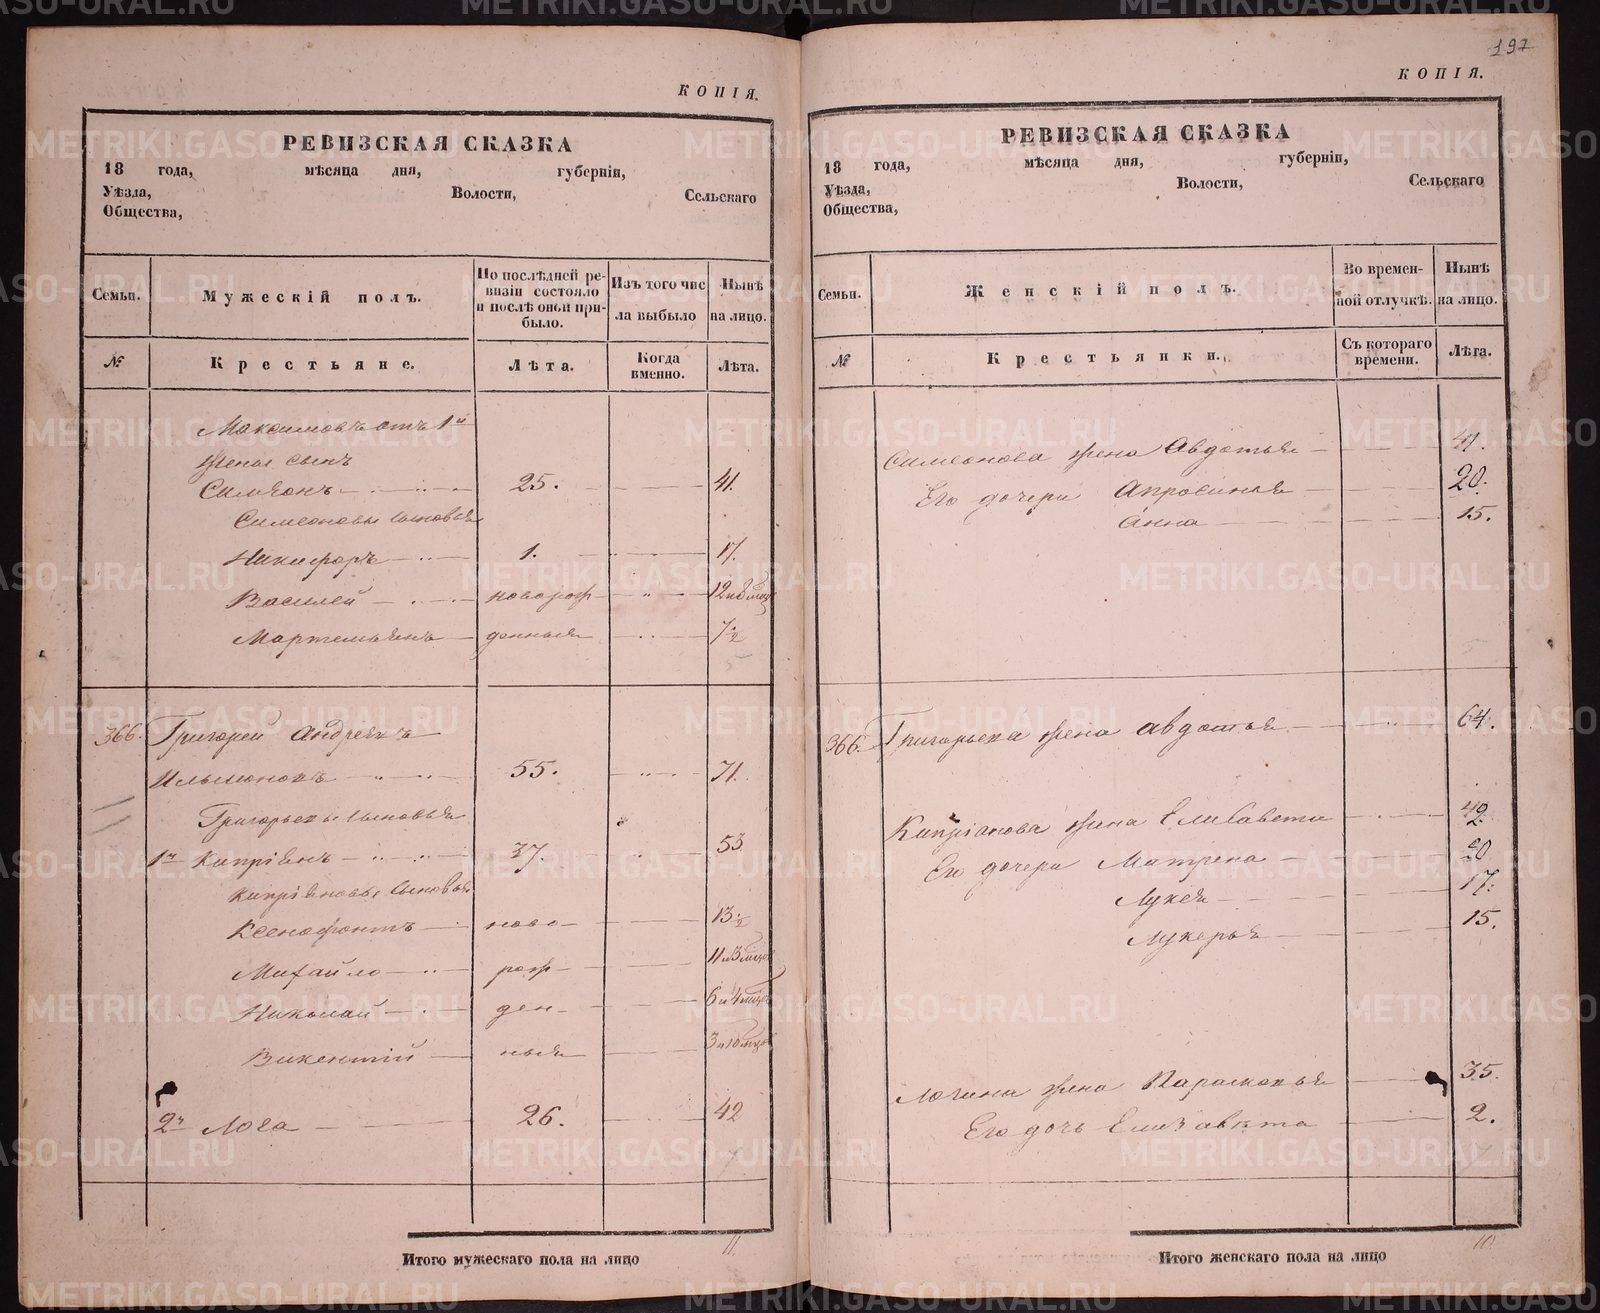 197
КОПІЯ.
РЕВИЗСКАЯ СКАЗКА
18 года, мѣсяца дня, губерніи,
Уѣзда, Волости, Сельскаго
Общества,
Семьи. Мужескій полъ. По послѣдней ревизіи состояло и послѣ оной прибыло. Изъ того числа выбыло Нынѣ на лицо.
№ Крестьяне. Лѣта. Когда именно. Лѣта.
Максимовъ отъ 1й
жены сынъ
Симеонъ 25. 41.
Симеоновы сыновья
Никифоръ 1. 17.
Василей новорож 12 и 8 мцов
Мартемьянъ денныя 7 ½
5
366. Григорей Андреевъ
55. 71.
Григорьевы сыновья
1й Кипріянъ 37. 53
Кипріяновы сыновья
Ксенофонтъ ново 13 ½
Михайло рож 11 и 3 мцов
Николай ден 6 и 4 мцов
Викентій ныя 3 и 10 мцов
2й Лога 26. 42
7
Итого мужескаго пола на лицо 11
КОПІЯ.
РЕВИЗСКАЯ СКАЗКА
18 года, мѣсяца дня, губерніи,
Уѣзда, Волости, Сельскаго
Общества,
Семьи. Женскій полъ. Во временной отлучкѣ. Нынѣ на лицо.
№ Крестьянки. Съ котораго времени. Лѣта.
Симеонова жена Авдотья 41.
Его дочери Апросинья 20.
Анна 15.
366. Григорьева жена Авдотья 64.
Кипріанова жена Елисавета 42.
Его дочери Матрена 20
Лукея 17.
Лукерья 15.
Логина жена Парасковья 35.
Его дочь Елизавета 2.
Итого женскаго пола на лицо 10
METRIKI.GASO-URAL.RU